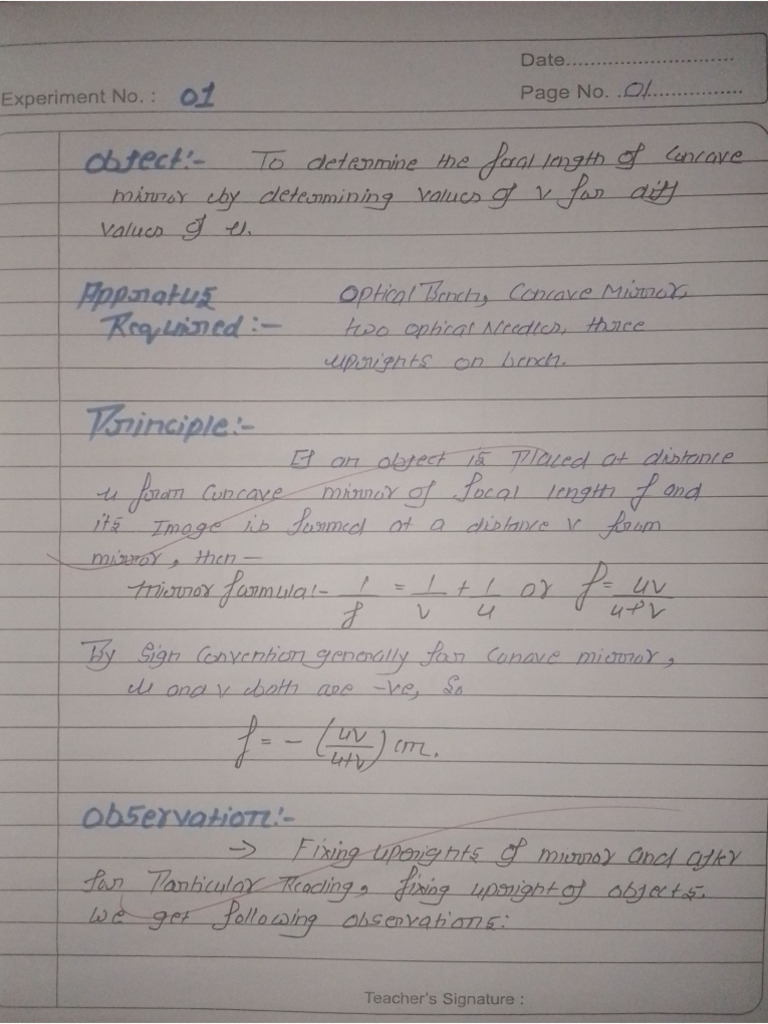 Date............................
Experiment No. : 01
Page No. ..01................
Object:- To determine the focal length of Concave
mirror by determining values of v for diff
values of u.
Appratus Optical Bench, Concave Mirror,
Required:- two optical Needles, three
uprights on bench.
Principle:-
If an object is Placed at distance
u from Concave mirror of focal length f and
its Image is formed at a distance v from
mirror, then —
mirror formula:- 1/f = 1/v + 1/u or f = uv/u+v
By Sign Convention generally for Conave mirror,
u and v both are -ve, So
f = - (uv/u+v) cm.
Observation:-
→ Fixing uprights of mirror and after
for Particular Reading, fixing upright of objects.
we get following observations:
Teacher's Signature :